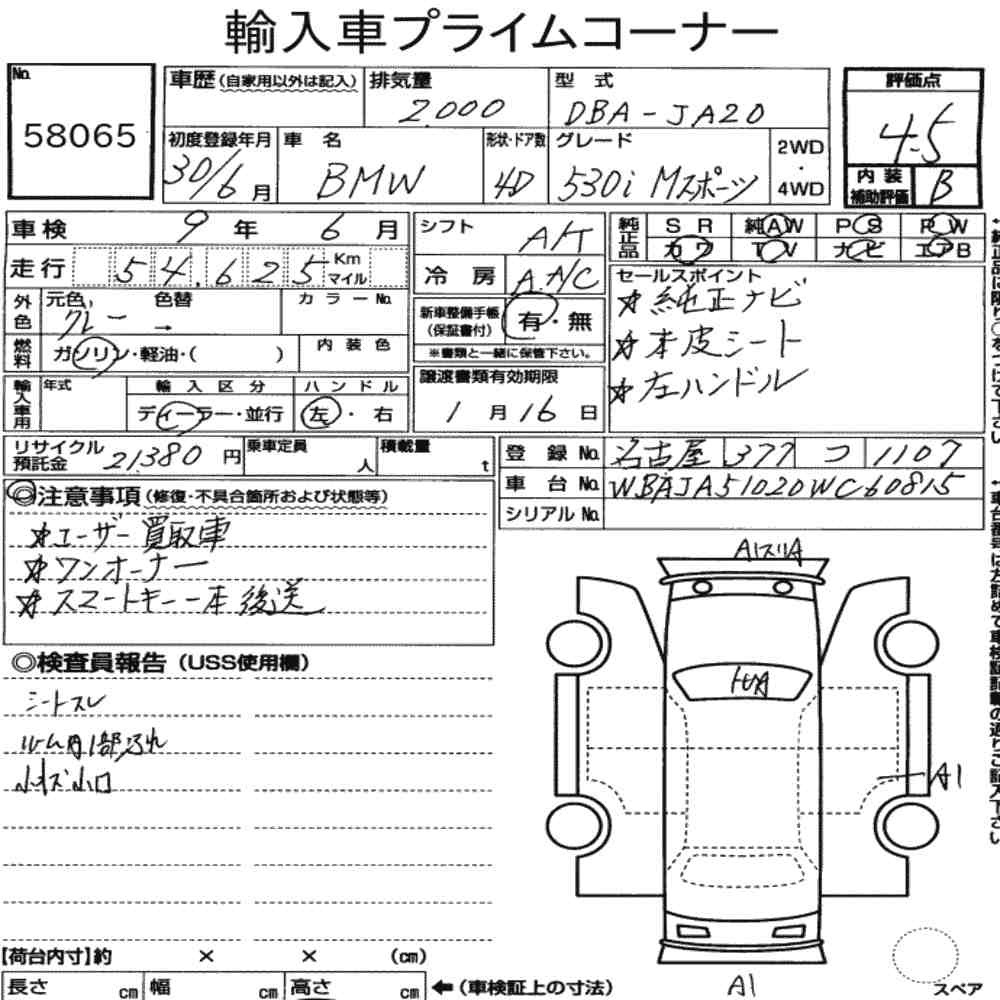 輸入車プライムコーナー
No.
58065
車歴 (自家用以外は記入)
排気量
2.000
型式
DBA-JA20
評価点
4.5
初度登録年月
30/6月
車名
BMW
形状・ドア数
4D
グレード
530i Mスポーツ
2WD
・
4WD
内装
補助評価
B
車検 9年 6月
走行 54,625 Km
マイル
外色
元色
グレー
色替
→
カラーNo.
燃料
ガソリン・軽油・( )
内装色
輸入車用
年式
輸入区分
ディーラー・並行
ハンドル
左・右
シフト
A/T
冷房
A.A/C
新車整備手帳
(保証書付)
有・無
※書類と一緒に保管下さい。
譲渡書類有効期限
1月16日
純正品
SR 純AW PS PW
カワ TV ナビ エアB
セールスポイント
☆純正ナビ
☆本皮シート
☆左ハンドル
リサイクル
預託金
21,380円
乗車定員
人
積載量
t
登録No.
名古屋 377 つ 1107
車台No.
WBAJA51020WC60815
シリアルNo.
◎注意事項 (修復・不具合箇所および状態等)
☆ユーザー買取車
☆ワンオーナー
☆スマートキー一本後送
◎検査員報告 (USS使用欄)
シートスレ
ルーム内1部汚れ
小キズ小凹
A1スリA
A1
A1
スペア
【荷台内寸】約 × × (cm)
長さ cm
幅 cm
高さ cm
←(車検証上の寸法)